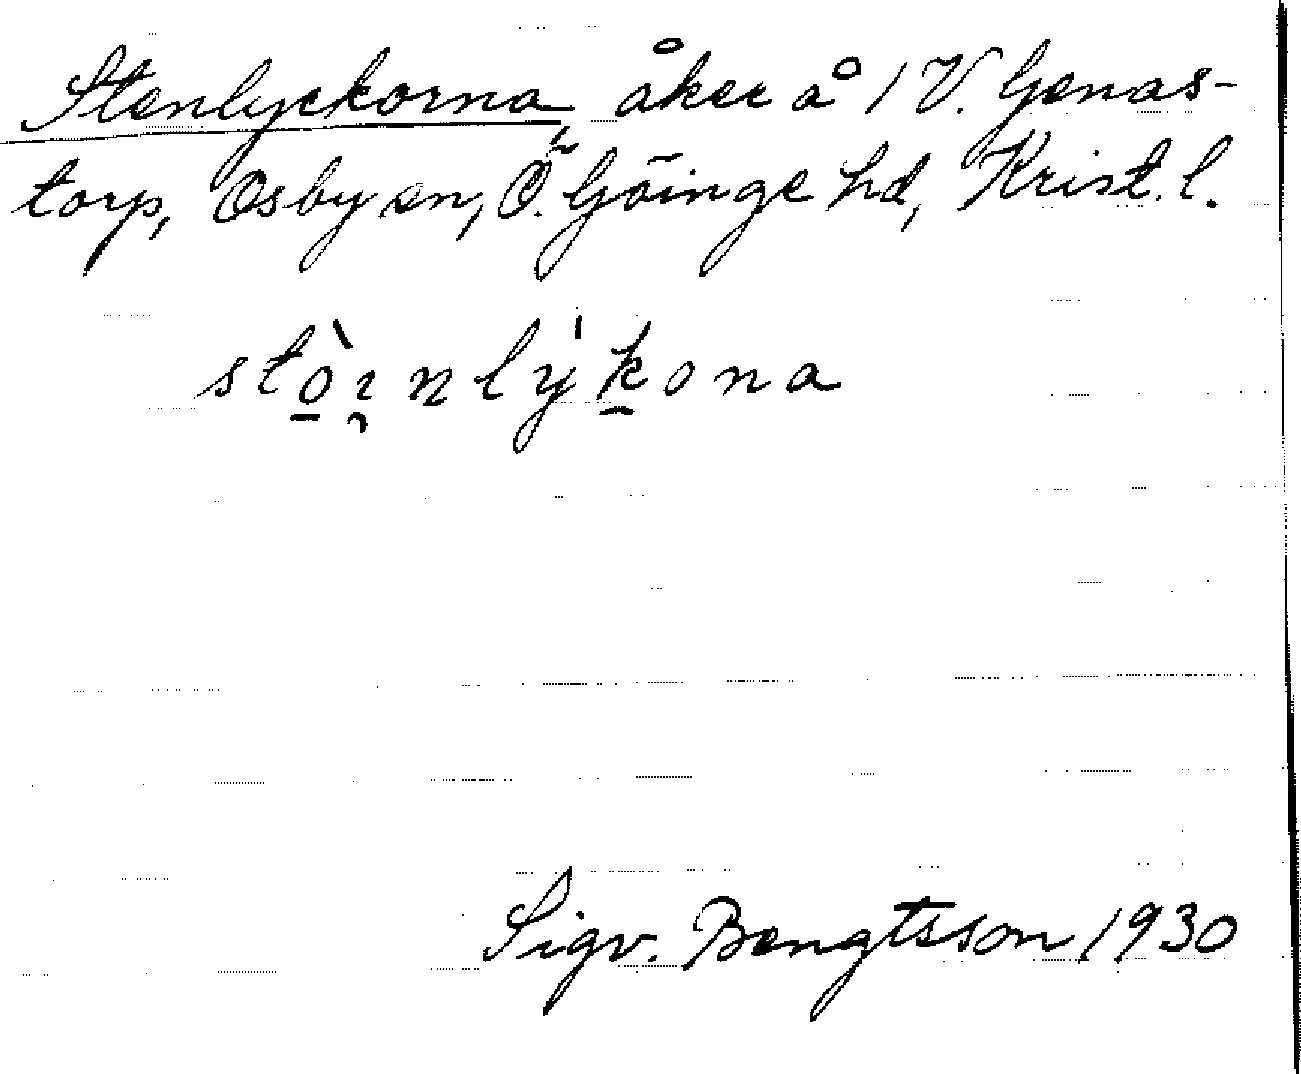 Stenlyckorna åker å 1 V. Genas-
torp, Osby sn, Ö. Göinge hd, Krist. l.
stò̱ı̯nlýḵona
Sigv. Bengtsson 1930